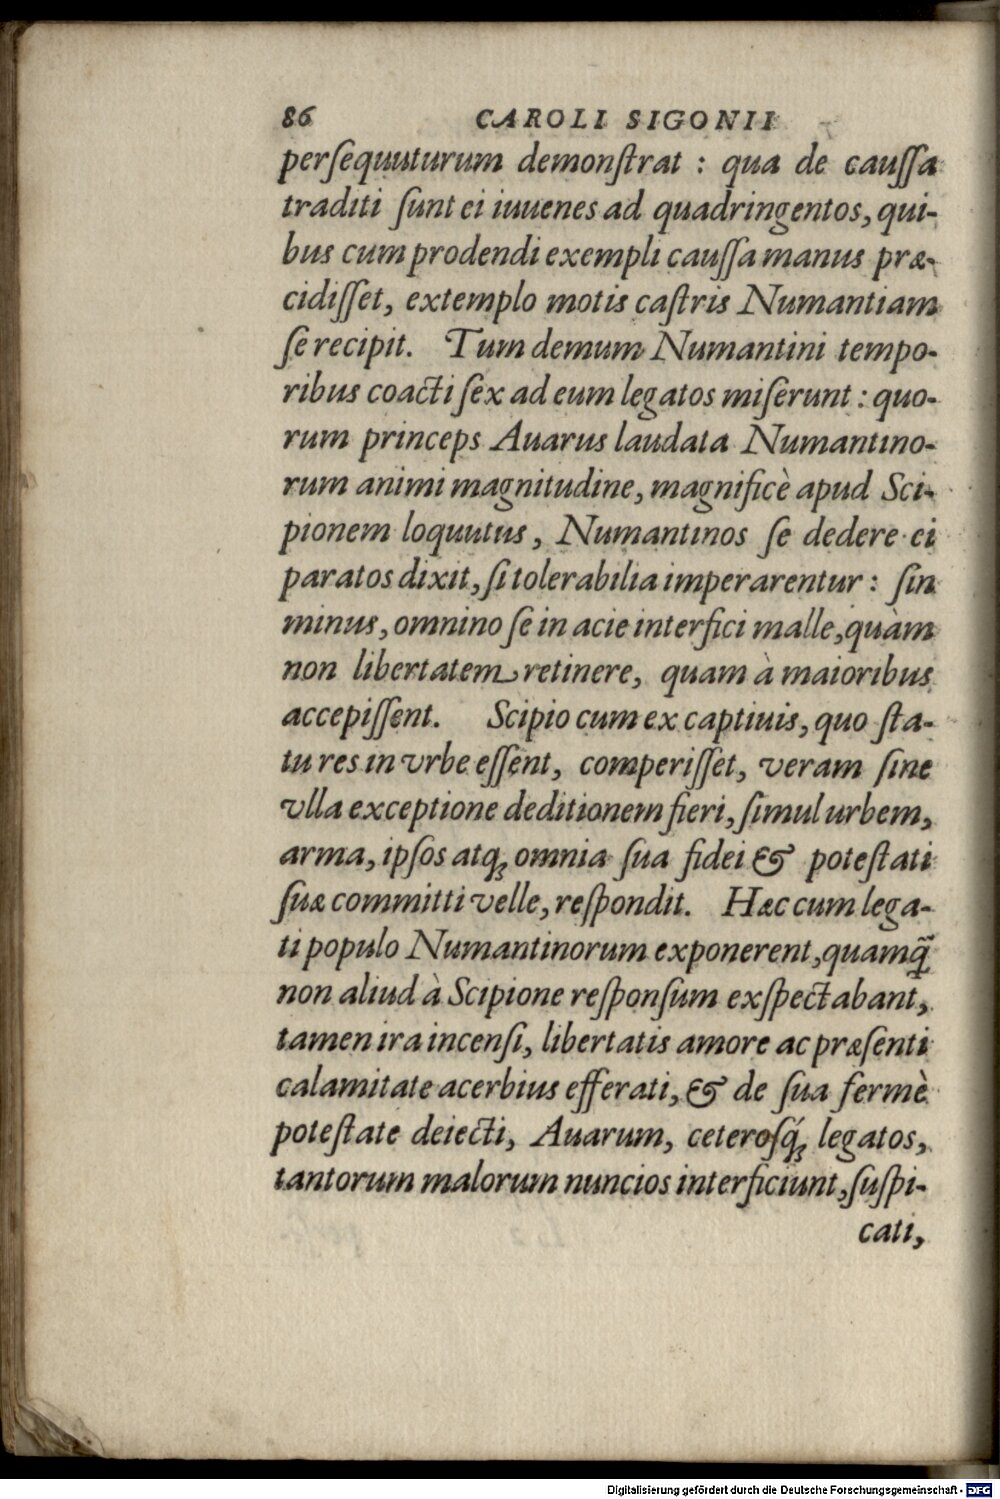 86 CAROLI SIGONII
perſequuturum demonſtrat : qua de cauſſa
traditi ſunt ei iuuenes ad quadringentos, qui-
bus cum prodendi exempli cauſſa manus præ-
cidiſſet, extemplo motis caſtris Numantiam
ſe recipit. Tum demum Numantini tempo-
ribus coacti ſex ad eum legatos miſerunt : quo-
rum princeps Auarus laudata Numantino-
rum animi magnitudine, magnificè apud Sci-
pionem loquutus, Numantinos ſe dedere ei
paratos dixit, ſi tolerabilia imperarentur : ſin
minus, omnino ſe in acie interfici malle, quàm
non libertatem retinere, quam à maioribus
accepiſſent. Scipio cum ex captiuis, quo ſta-
tu res in vrbe eſſent, comperiſſet, veram ſine
vlla exceptione deditionem fieri, ſimul urbem,
arma, ipſos atqꝫ omnia ſua fidei & poteſtati
ſuæ committi velle, reſpondit. Hæc cum lega-
ti populo Numantinorum exponerent, quamq̃
non aliud à Scipione reſponſum exſpectabant,
tamen ira incenſi, libertatis amore ac præſenti
calamitate acerbius efferati, & de ſua fermè
poteſtate deiecti, Auarum, ceteroſq́ꝫ legatos,
tantorum malorum nuncios interficiunt, ſuſpi-
cati,
Digitalisierung gefördert durch die Deutsche Forschungsgemeinschaft - DFG